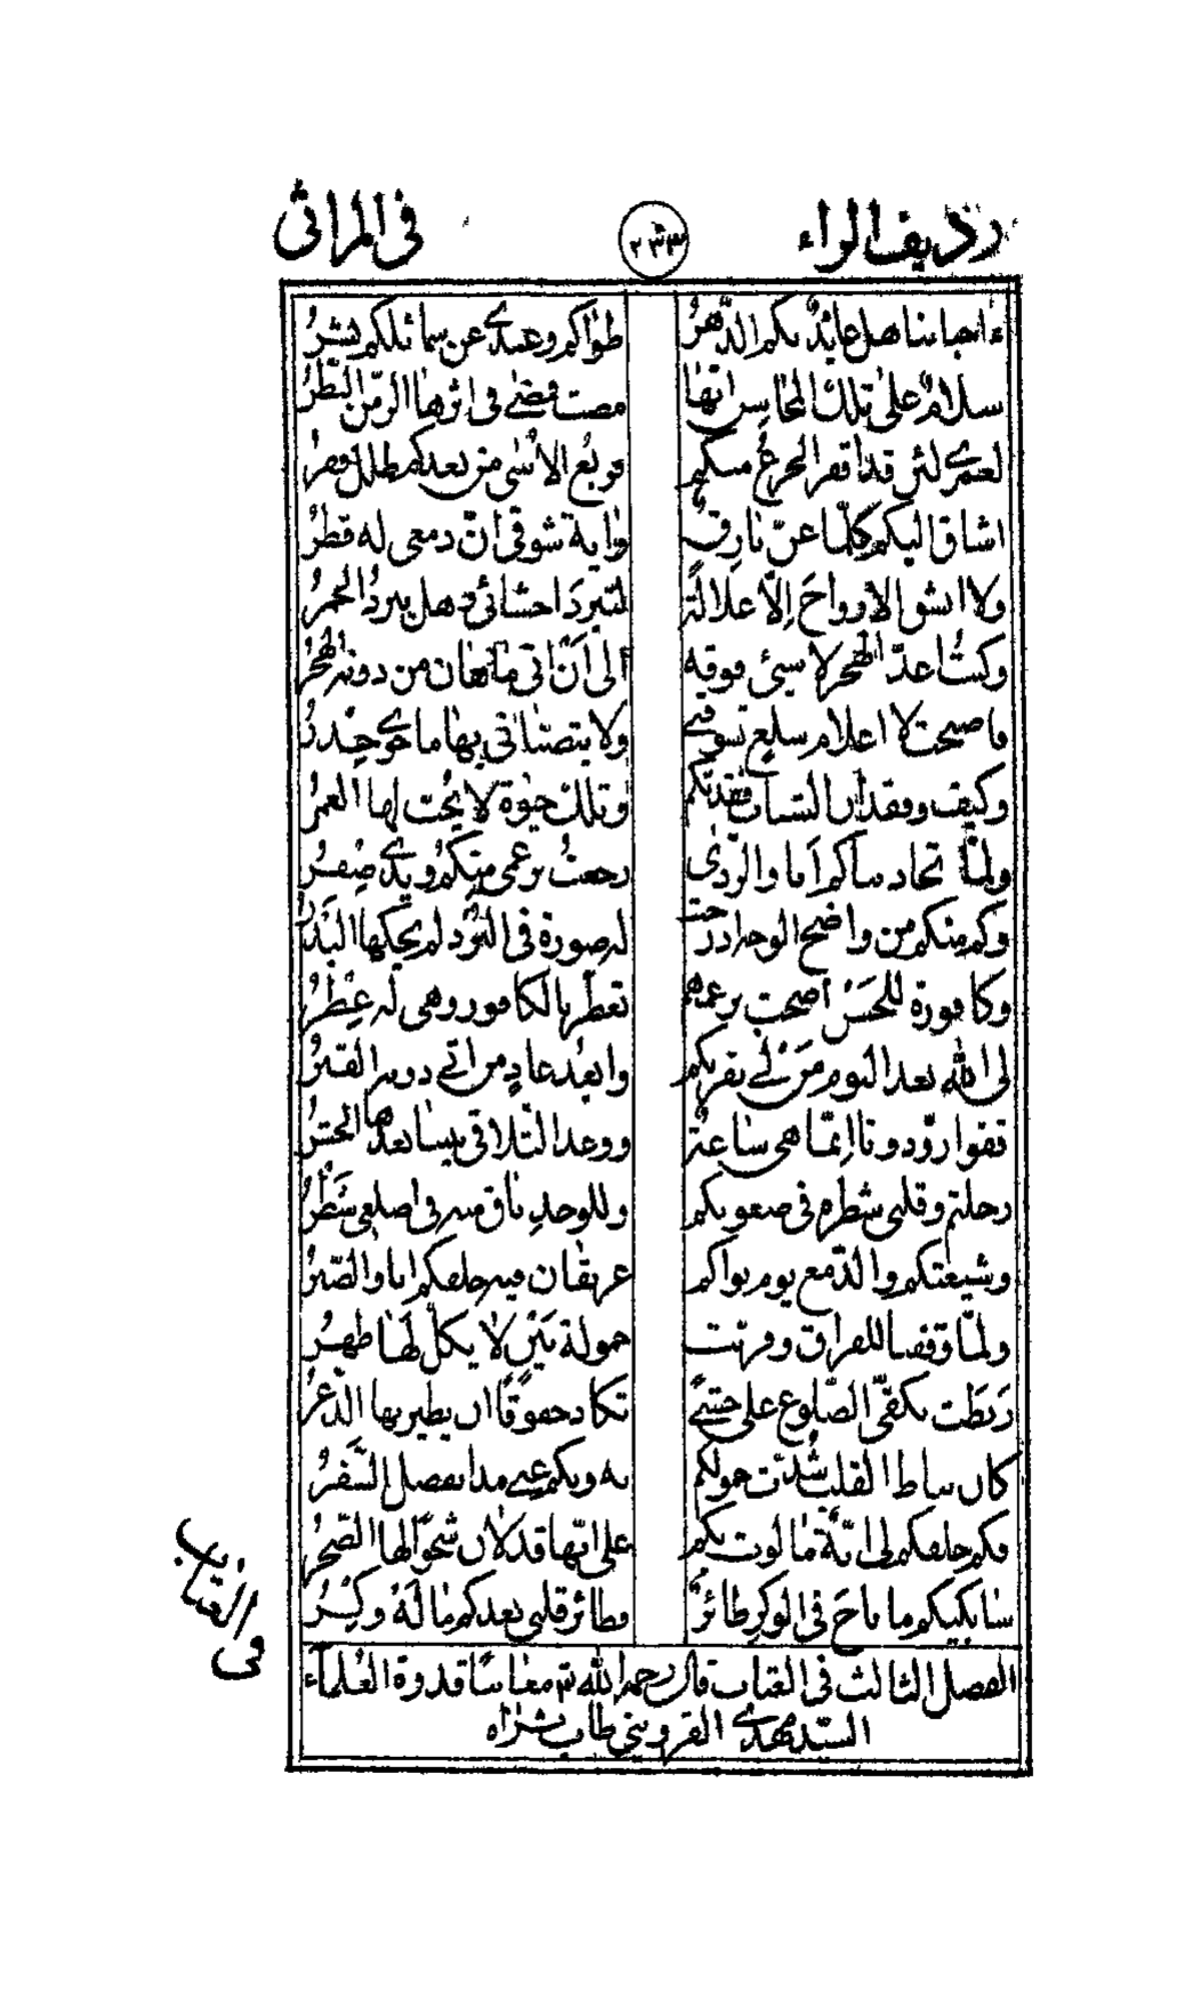 رديف الراء ٢٣٣ في المراثي
ءاحبابنا هل عايدٌ بكم الدّهرُ طواكم وعندي عن شمائلكم نشرُ
سلامٌ على تلك المحاسن انّها مضت فمضى في اثرها الزمن النّضرُ
لعمري لئن قد اقفر الجزع منكم فربع الاسى من بعدكم طلل قفرُ
اشتاق اليكم كلّما عنّ بارقٌ واية شوقي انّ دمعي له قطرُ
ولا انشق الارواحَ إلّا علالةً لتبردَ احشائي وهل يبردُ الجمرُ
وكنتُ اعدّ الهجر لا شيئ فوقه الى اَنْ اتى ما هان من دونه الهجرُ
فاصبحت لا اعلام سلع تشوقني ولا يتصبّاني بها ما حوى خِدرُ
وكيف وفقدان الشباب فقدتكم وتلك حيوة لا يُحبّ لها العمرُ
ولمّا تجاذبناكم اَنا والرّدى رجعتُ برغمي منكمُ ويدي صِفرُ
وكم منكم من واضح الوجه ادرجت له صورة في التُرْب لم يحكها البَدرُ
وكافورة للحُسْن اَضحت برغمهم تعطّر بالكافور وهي له عِطْرُ
لي الله بعد اليوم مَنْ لي بقربكم وابعُد عادٍ من اتى دونه القبرُ
قفوا زوّدونا اِنّما هي ساعةٌ ووعد التّلاقي بيننا بعدها الحشرُ
رحلتم وقلبي شطره في ضعونكم وللوجدِ باق منه في اضلعي شَطْرُ
وشيعتكم والدّمع يوم نواكم غريقان فيه خلفكم انا والصّبرُ
ولمّا وقفنا للفراق وقرّبت حمولة بَيْنٍ لا يكلّ لها ظهرُ
رَبَطت بكفّي الضّلوع على حشىً تكاد خفوقًا ان يطير بها الذّعرُ
كان نياط القلب شُدّت حمولكم به وبكم عنّي مذ انفصل السَّفرُ
فكم خلفكم لي انّةٌ ما لوت بكم على انّها قد لان شجوًا لها الصّخرُ
سابكيكم ما ناحَ في الوكر طائرٌ وطائر قلبي بعدكم ما لَهُ وكْرُ
الفصل الثالث في العتاب قال رحمه الله تع معاتبًا قدوة العُلماء
السّيد مهدي القزويني طاب ثراه
في العتاب